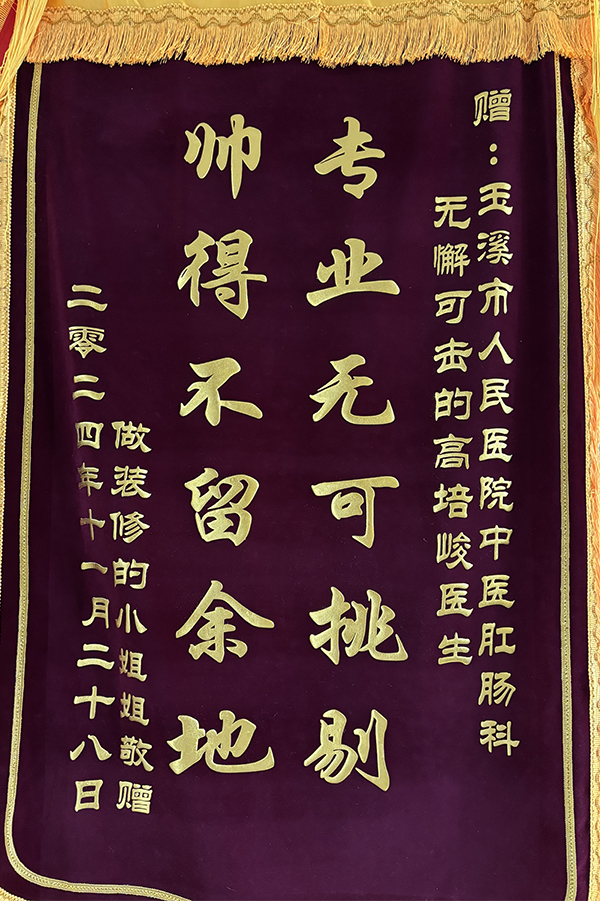 赠：玉溪市人民医院中医肛肠科
无懈可击的高培峻医生
专业无可挑剔
帅得不留余地
做装修的小姐姐敬赠
二零二四年十一月二十八日